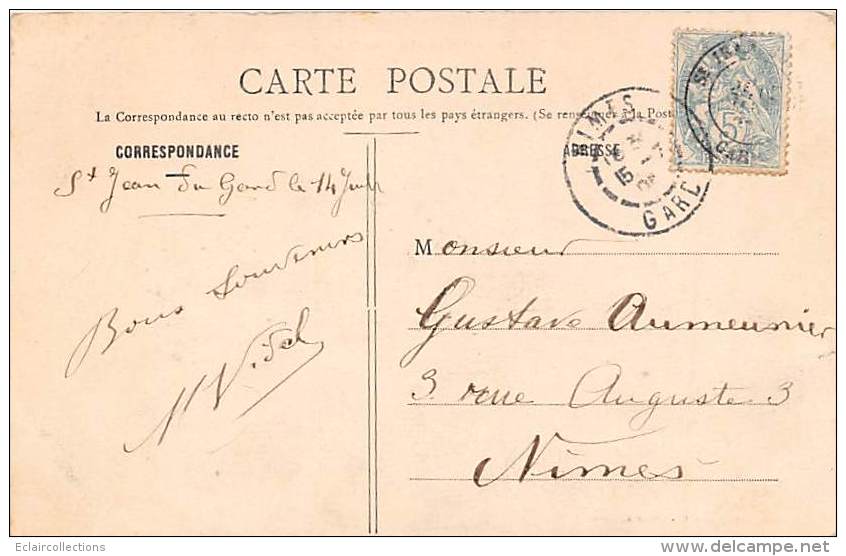 CARTE POSTALE
La Correspondance au recto n'est pas acceptée par tous les pays étrangers. (Se renseigner à la Post
CORRESPONDANCE
ADRESSE
St Jean du Gard le 14
Bons Souvenirs
Vidal
NIMES
GARD
5
Monsieur
Gustave Aumeunier
3 rue Auguste 3
Nimes
Eclaircollections
www.delcampe.net